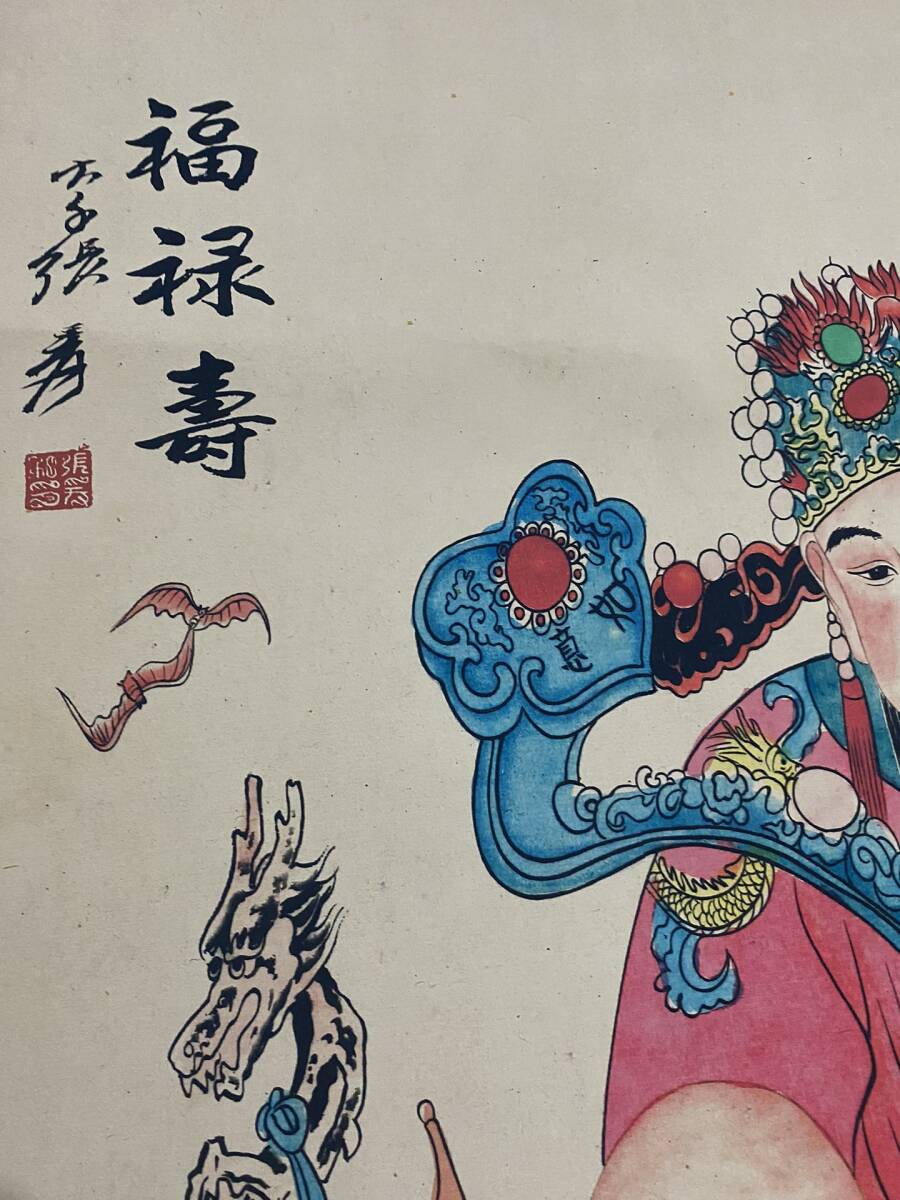 福禄壽
大千張爰
如意